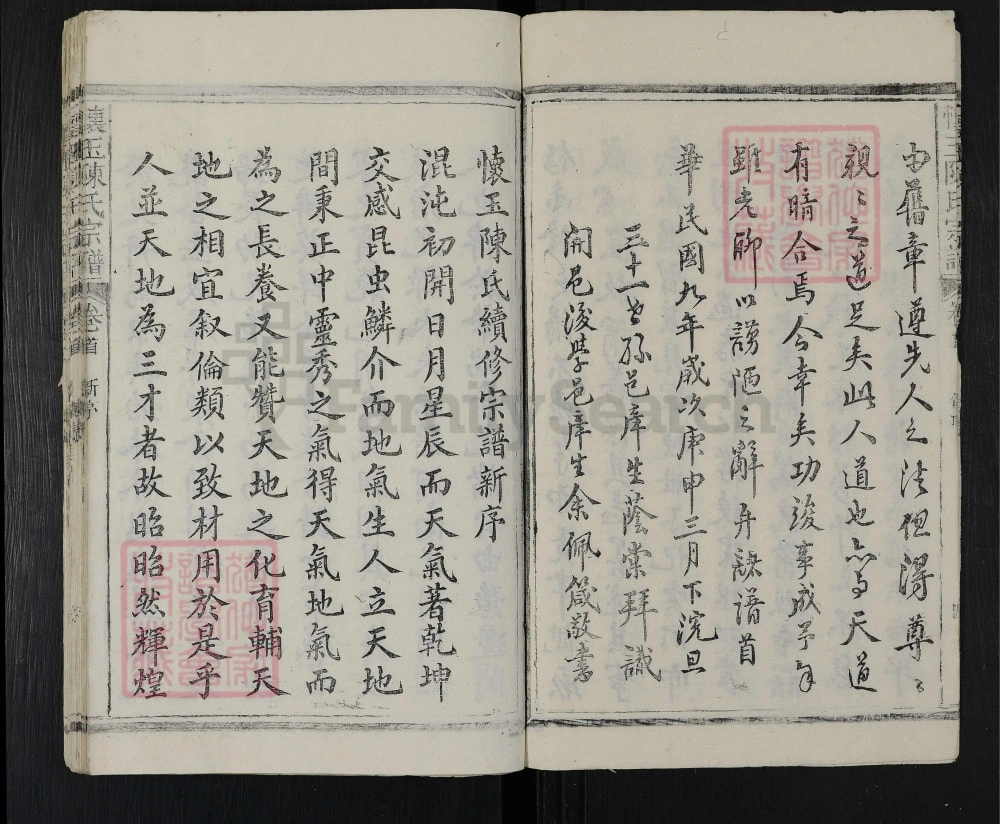 由舊章遵先人之法但得尊〻
親〻之道足矣此人道也亦与天道
有暗合焉今幸矣功竣事成予年
雖老聊以謭陋之辭弁諸譜首
華民國九年歲次庚申三月下浣旦
三十一世孫邑庠生蔭棠拜識
開邑後學邑庠生余佩箴敬書
懷玉陳氏續修宗譜新序
混沌初開日月星辰而天氣著乾坤
交感昆虫鱗介而地氣生人立天地
間秉正中靈秀之氣得天氣地氣而
為之長養又能贊天地之化育輔天
地之相宜叙倫類以致材用於是乎
人並天地為三才者故昭昭然輝煌
懷玉陳氏宗譜 卷首 新序
FamilySearch